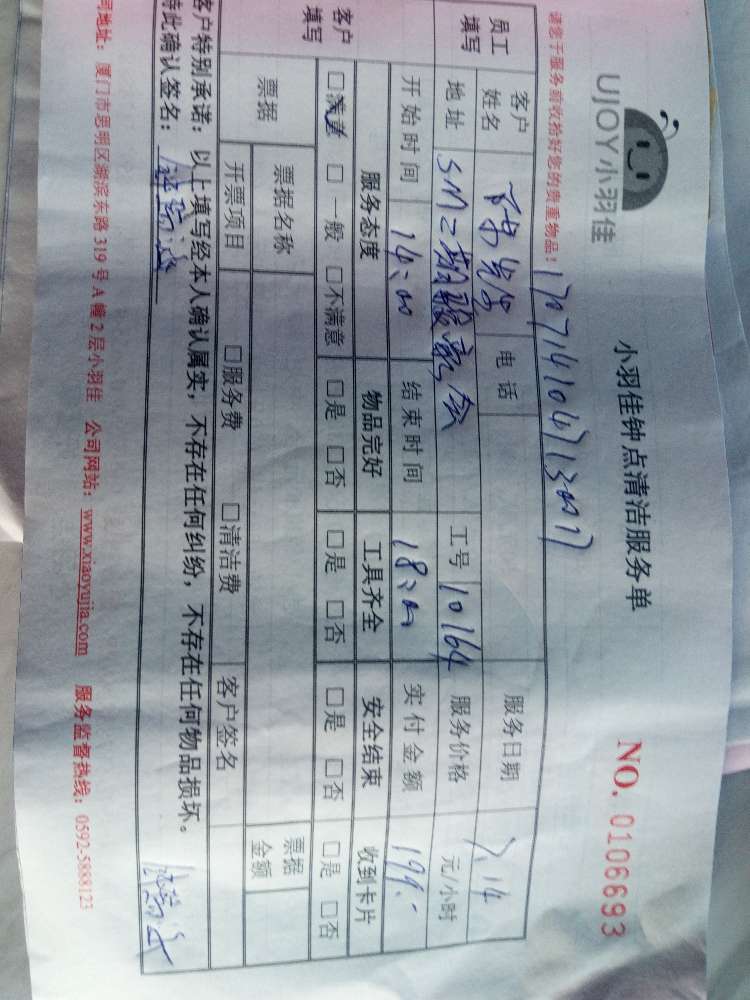 UJOY小羽佳
小羽佳钟点清洁服务单
NO. 0106693
请您于服务前收拾好您的贵重物品！
员工填写 客户姓名 电话 服务日期 7.14
地址 SM二期 工号 10164 服务价格 元/小时
开始时间 14:00 结束时间 18:00 实付金额
客户填写 服务态度 物品完好 工具齐全 安全结束 收到卡片
□满意 □一般 □不满意 □是 □否 □是 □否 □是 □否 □是 □否
票据 票据名称 票据金额
开票项目 □服务费 □清洁费 客户签名
客户特别承诺：以上填写经本人确认属实，不存在任何纠纷，不存在任何物品损坏。
特此确认签名：
司地址：厦门市思明区湖滨东路319号A幢2层小羽佳 公司网站：www.xiaoyujia.com 服务监督热线：0592-5888123